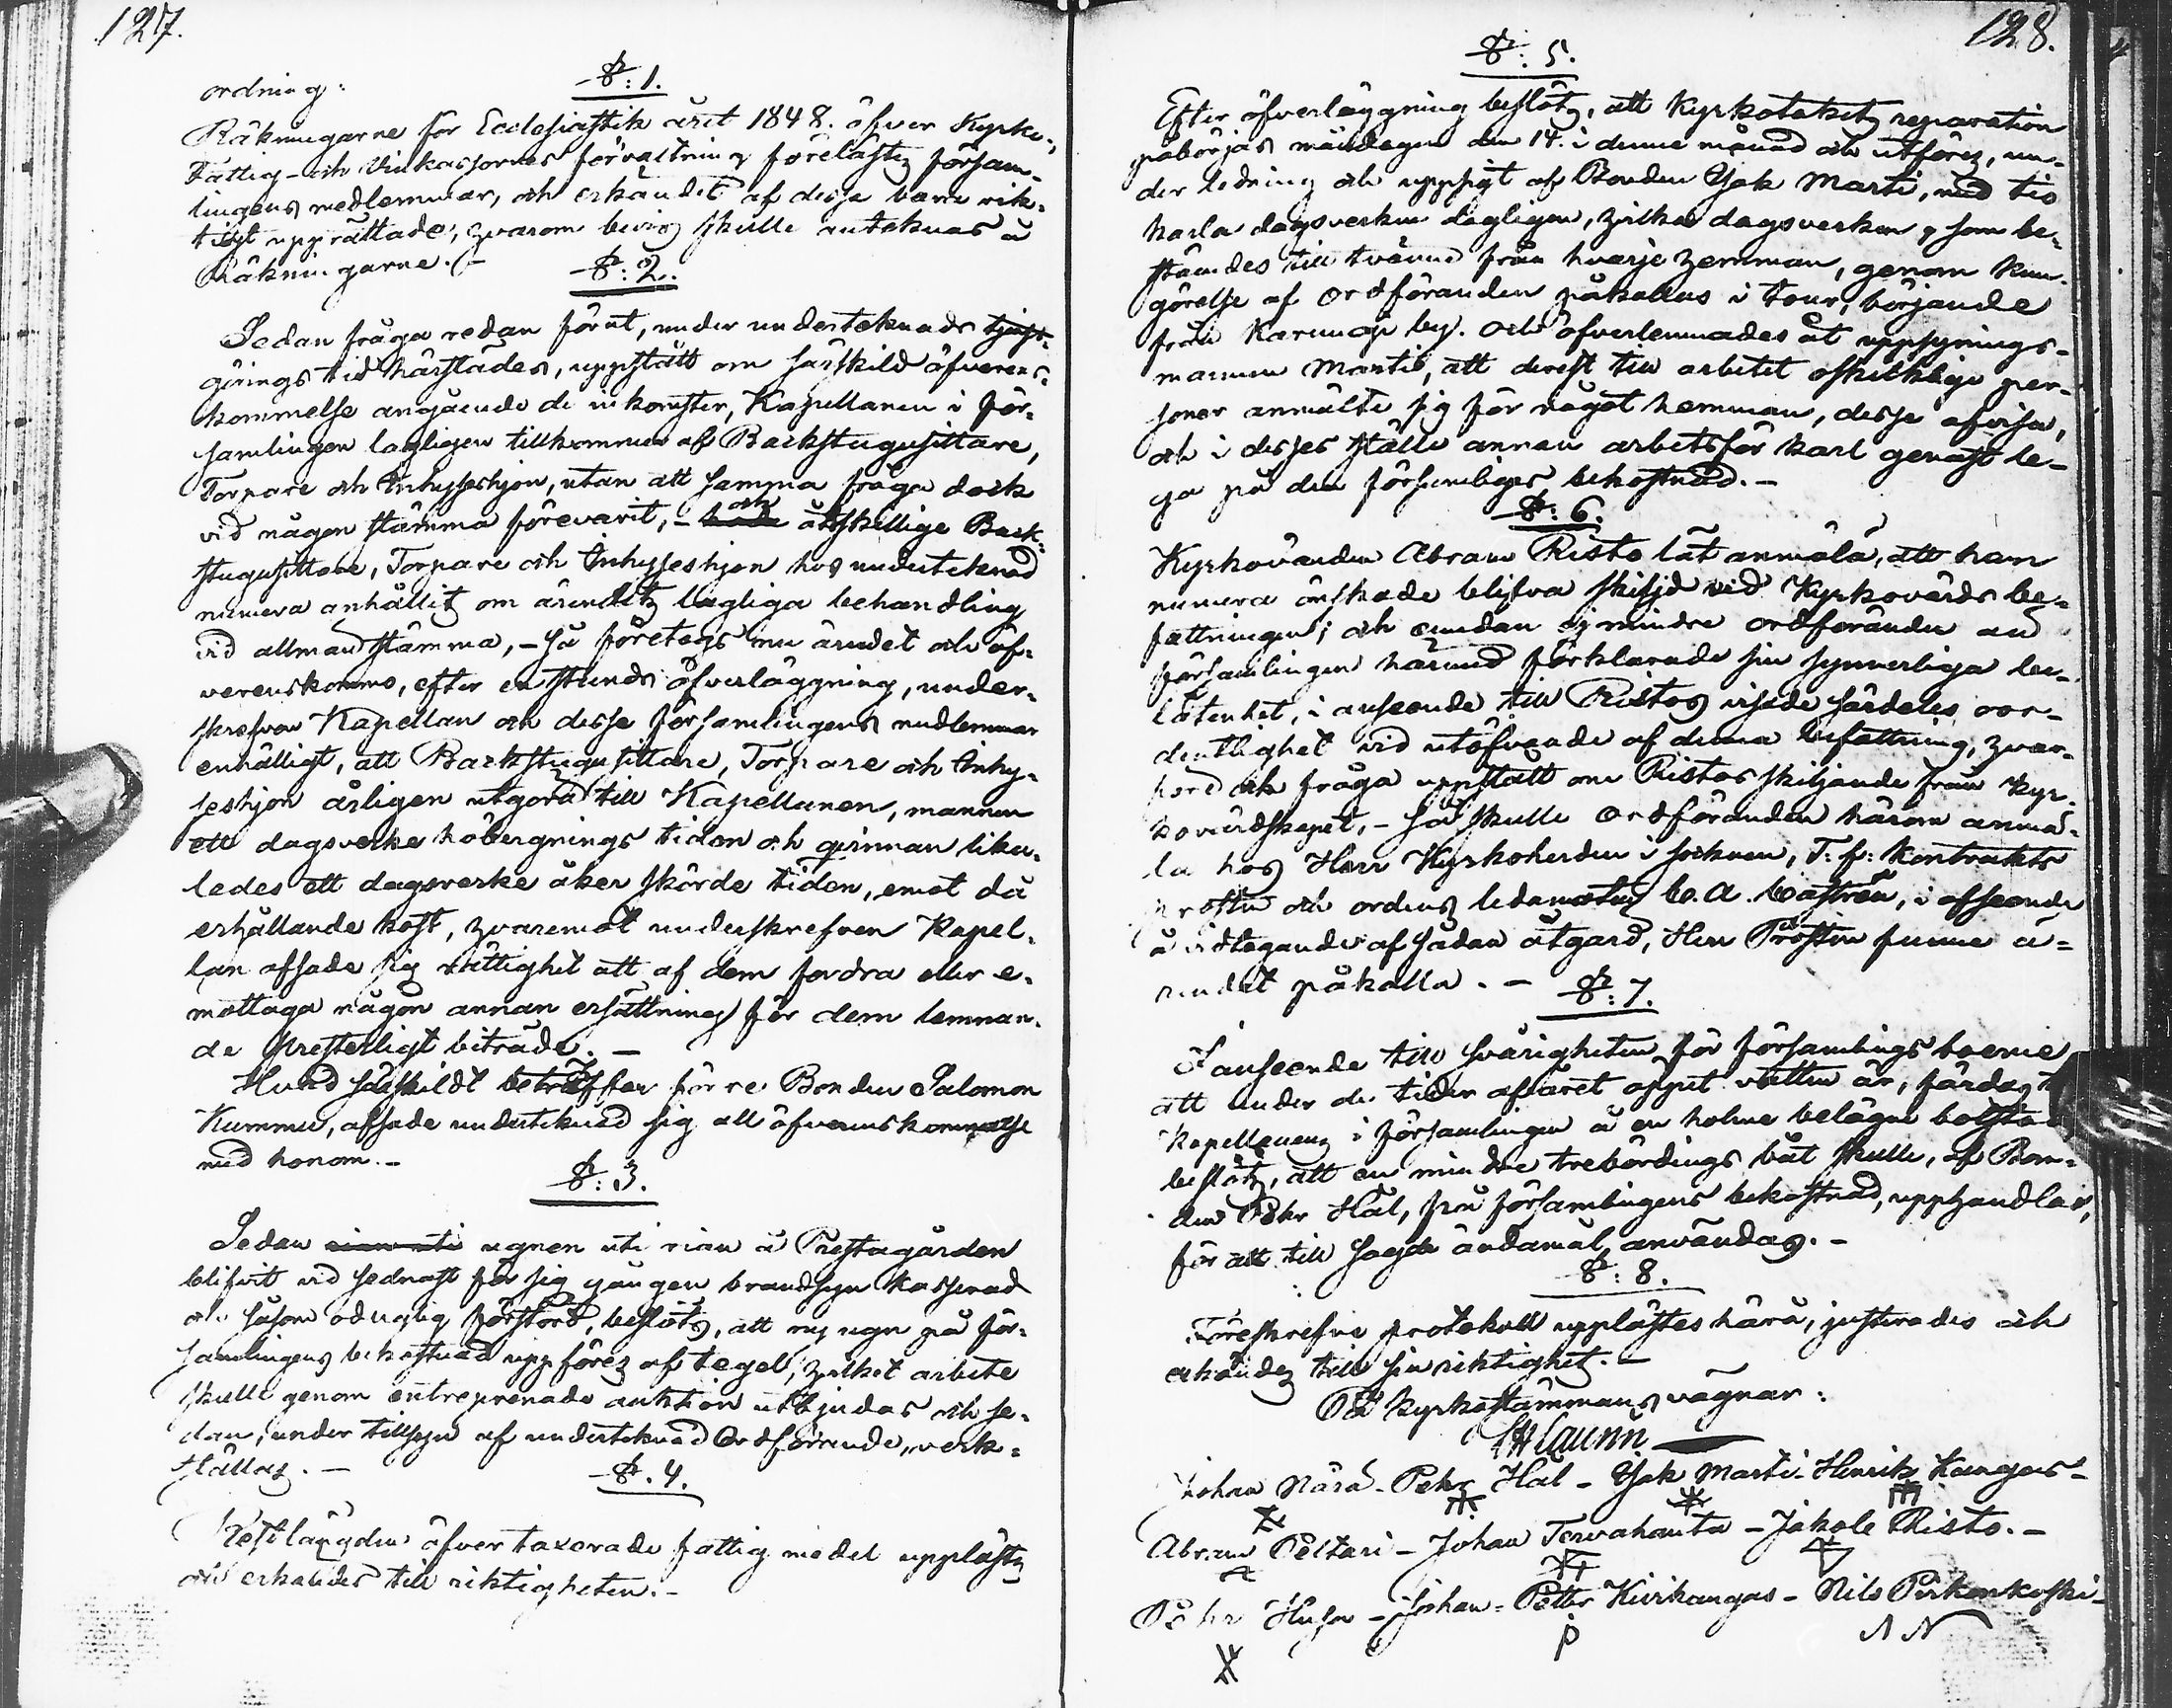 127.
ordning:
§: 1.
Räkningarne för Ecclesiastik året 1848. öfver Kyrko-,
Fattig- och Vinkassornes förvaltning förelästes försam-
lingens medlemmar, och erkändes af desse vara rik-
tigt upprättade, hvarom bevis skulle antecknas å
Räkningarne. -
§: 2.
Sedan fråga redan förut, under undertecknads tjenst-
göringstid härstädes, uppstått om särskild öfverens-
kommelse angående de inkomster, Kapellanen i för-
samlingen lagligen tillkommer af Backstugusittare,
Torpare och Inhysseshjon, utan att samma fråga dock
vid någon stämma förevarit, - och åtskillige Back-
stugusittare, Torpare och Inhysseshjon hos undertecknad
numera anhållit om ärendets lagliga behandling
vid allman stämma, - så företogs nu ärendet och öf-
verenskommo, efter en stunds öfverläggning, under-
skrefven Kapellan och desse församlingens medlemmar
enhälligt, att Backstugusittare, Torpare och Inhy-
seshjon årligen utgöra till Kapellanen, mannen
ett dagsverke höbergnings tiden och qvinnan lika-
ledes ett dagsverke åker skörde tiden, emot då
erhållande kost, hvaremot underskrefven Kapel-
lan afsade sig rättighet att af dem fordra eller e-
mottaga någon annan ersättning för dem lemnan-
de presterligt biträde. -
Hvad särskildt beträffar förre Bonden Salomon
Kummu, afsade undertecknad sig all öfverenskommelse
med honom. -
§: 3.
Sedan ugnen uti rian å Prestagården
blifvit vid sednast för sig gången brandsyn kasserad
och såsom oduglig förstörd, beslöts, att ny ugn på för-
samlingens bekostnad uppföres af tegel, hvilket arbete
skulle genom entreprenade auktion utbjudas och se-
dan, under tillsyn af undertecknad Ordförande, verk-
ställas. -
§. 4.
Restlängden öfver taxerade fattig medel upplästes
och erkändes till riktigheten. -
128.
§: 5.
Efter öfverläggning beslöts, att Kyrkotakets reparation
påbörjas måndagen den 14. i denne månad och utföres, un-
der ledning och uppsigt af Bonden Isak Marti, med tio
karla dagsverken dagligen, hvilka dagsverken, som be-
stämdes till tvänne från hvarje hemman, genom kun-
görelse af ordföranden påkallas i tour, börjande
från Karungi by. Och öfverlemnades åt uppsynings-
mannen Marti, att derest till arbetet oskicklige per-
soner anmälte sig för något hemman, desse afvisa,
och i desses ställe annan arbetsför karl genast le-
ga på den församliges bekostnad. -
§: 6.
Kyrkovärden Abram Risto lät anmäla, att han
numera önskade blifva skiljd vid Kyrkovärds be-
fattningen; och emedan ej mindre ordföranden än
församlingen härmed förklarade sin synnerliga be-
låtenhet, i anseende till Ristos visade särdeles oor-
dentlighet vid utöfvande af denna befattning, hvar-
förd och fråga uppstått om Ristos skiljande från Kyr-
kovärdskapet, - så skulle Ordföranden härom anmä-
la hos Herr Kyrkoherden i socknen, T: f: Kontrakts
prosten och ordens ledamoten C. A. Castrén, i afseende
å vidtagande af sådan åtgärd, Herr Prosten funne ä-
rendet påkalla. -
§: 7.
I anseende till svårigheten för församlings boerne
att under de tider af året öppet vatten är, färdas till
Kapellanens i församlingen å en holme belägne bolstad
beslöts, att en mindre trebördings båt skulle, af Bon-
den Pehr Hal, på församlingens bekostnad, upphandlas,
för att till sagde ändamål användas. -
§: 8.
Föreskrefne protokoll upplästes härå, justerades och
erkändes till sin riktighet. -
På Kyrkostämmans vägnar:
Johan Nara - Pehr Hal - Isak Marti - Henrik Kangas -
Abram Peltari - Johan Tervahauta - Jakole Risto. -
Pehr Husa - Johan Petter Kiirikangas - Nils Pirkonkoski -
P
N N